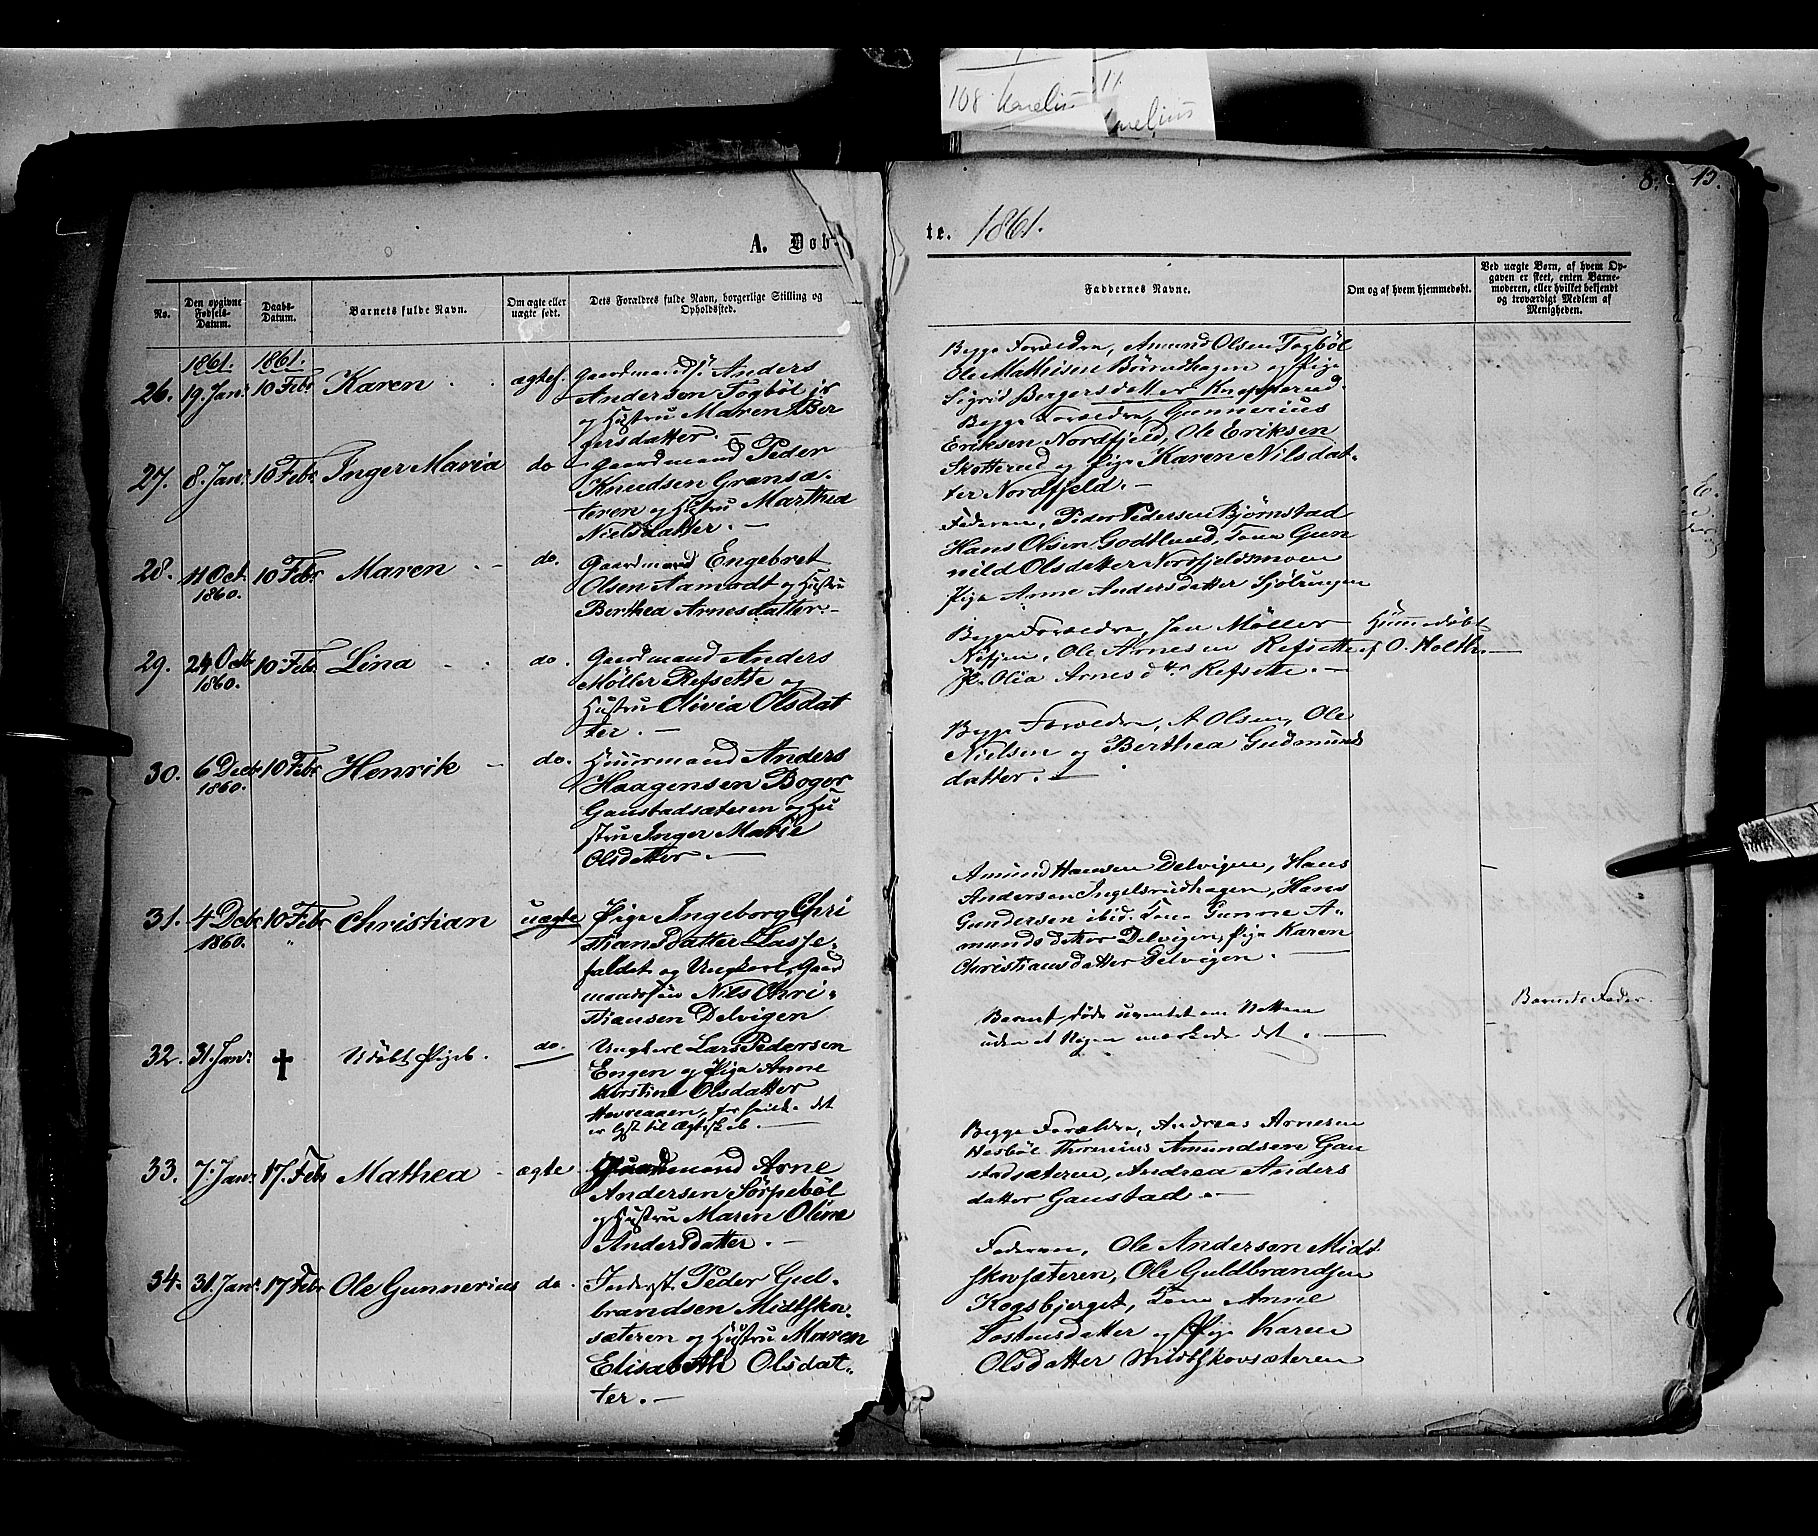 108 Karelius 11
Karelius
8. 13.
A. Døb-
te. 1861.
No.
Den opgivne
Fødsels-
Datum.
Daabs-
Datum.
Barnets fulde Navn.
Om ægte eller
uægte født.
Dets Forældres fulde Navn, borgerlige Stilling og
Opholdssted.
Faddernes Navne.
Om og af hvem hjemmedøbt.
Ved uægte Børn, af hvem Op-
gaven er skeet, enten Barne-
moderen, eller hvilket bekjendt
og troværdigt Medlem af
Menigheden.
1861. 1861.
26. 19 Jan: 10 Febr Karen ægtef.
Gaardmand Anders
Andersen Togbøl
og Hustru Maren Ber
gersdatter. —
Begge Forældre, Amund Olsen Togbøl
Ole Mathisen Børudhagen og Pige
Sigrid Bergersdatter Knapperud.
27. 8. Jan: 10 Febr. Inger Maria do
Gaardmand Peder
Knudsen Gransæ-
teren og Hstru Marthea
Nielsdatter. —
Begge Forældre, Gunnerius
Eriksen Nordfjeld, Ole Eriksen
Skotterud og Pige Karen Nilsdat-
ter Nordfjeld. —
28. 4 Oct. 1860. 10 Febr Maren do.
Gaardmand Engebret
Olsen Aamodt og Hustru
Berthea Arnesdatter. —
Faderen, Peder Pedersen Bjørnstad
Hans Olsen Godtlund, Kone Gun
nild Olsdatter Nordfjeldsmoen
Pige Anne Andersdatter Sjølungen
29. 24 Octbr 1860. 10 Febr Lina do.
Gaardmand Anders
Møller Refsette og
Hustru Olivia Olsdat
ter. —
Begge Forældre, Jan Møller
Ole Arnesen Refsette
P. Olia Arnesdtr. Refsette. —
Hjemmedøbt
af O. Holth. —
30. 6 Decbr 1860. 10 Febr Henrik do.
Huusmand Anders
Haagensen Boger
Ganstadsæteren og Hu
stru Inger Marie
Olsdatter. —
Begge Forældre, A Olsen, Ole
Nielsen og Berthea Gudmunds
datter. —
31. 4 Decbr 1860. 10 Febr Christian uægte
Pige Ingeborg Chri
stiansdatter Lasse-
faldet og Ungkarl, Gaard
mandssøn Nils Chri-
stiansen Delvigen
Amund Hansen Delvigen, Hans
Andersen Ingelsrudhagen, Hans
Gundersen ibid. Kone Gunne A-
mundsdatter Delvigen, Pige Karen
Christiansdatter Delvigen. —
Barnets Fader.
32. 31. Jan: † Udøbt Pigeb. do.
Ungkarl Lars Pedersen
Engen og Pige Anne
Kirstine Olsdatter
er lyst til Ægteskab. —
Barnet døde uventet om Natten
uden at Nogen mærkede det. —
33. 7. Jan: 17. Febr Mathea ægte
Gaardmand Arne
Andersen Sørpebøl
og Hustru Maren Oline
Andersdatter. —
Begge Forældre, Andreas Arnesen
Hesbøl Thorinius Amundsen Gan
stadsæteren, Andrea Anders
datter Ganstad. —
34. 31. Jan: 17 Febr Ole Gunnerius do.
Inderst Peder Gul-
brandsen Midtskov-
sæteren og Hustru Maren
Elisabeth Olsdat-
ter. —
Faderen, Ole Andersen Midt-
skovsæteren, Ole Guldbrandsen
Kogsbjerget, Kone Anne
Tostensdatter og Pige Karen
Olsdatter Midtskovsæteren